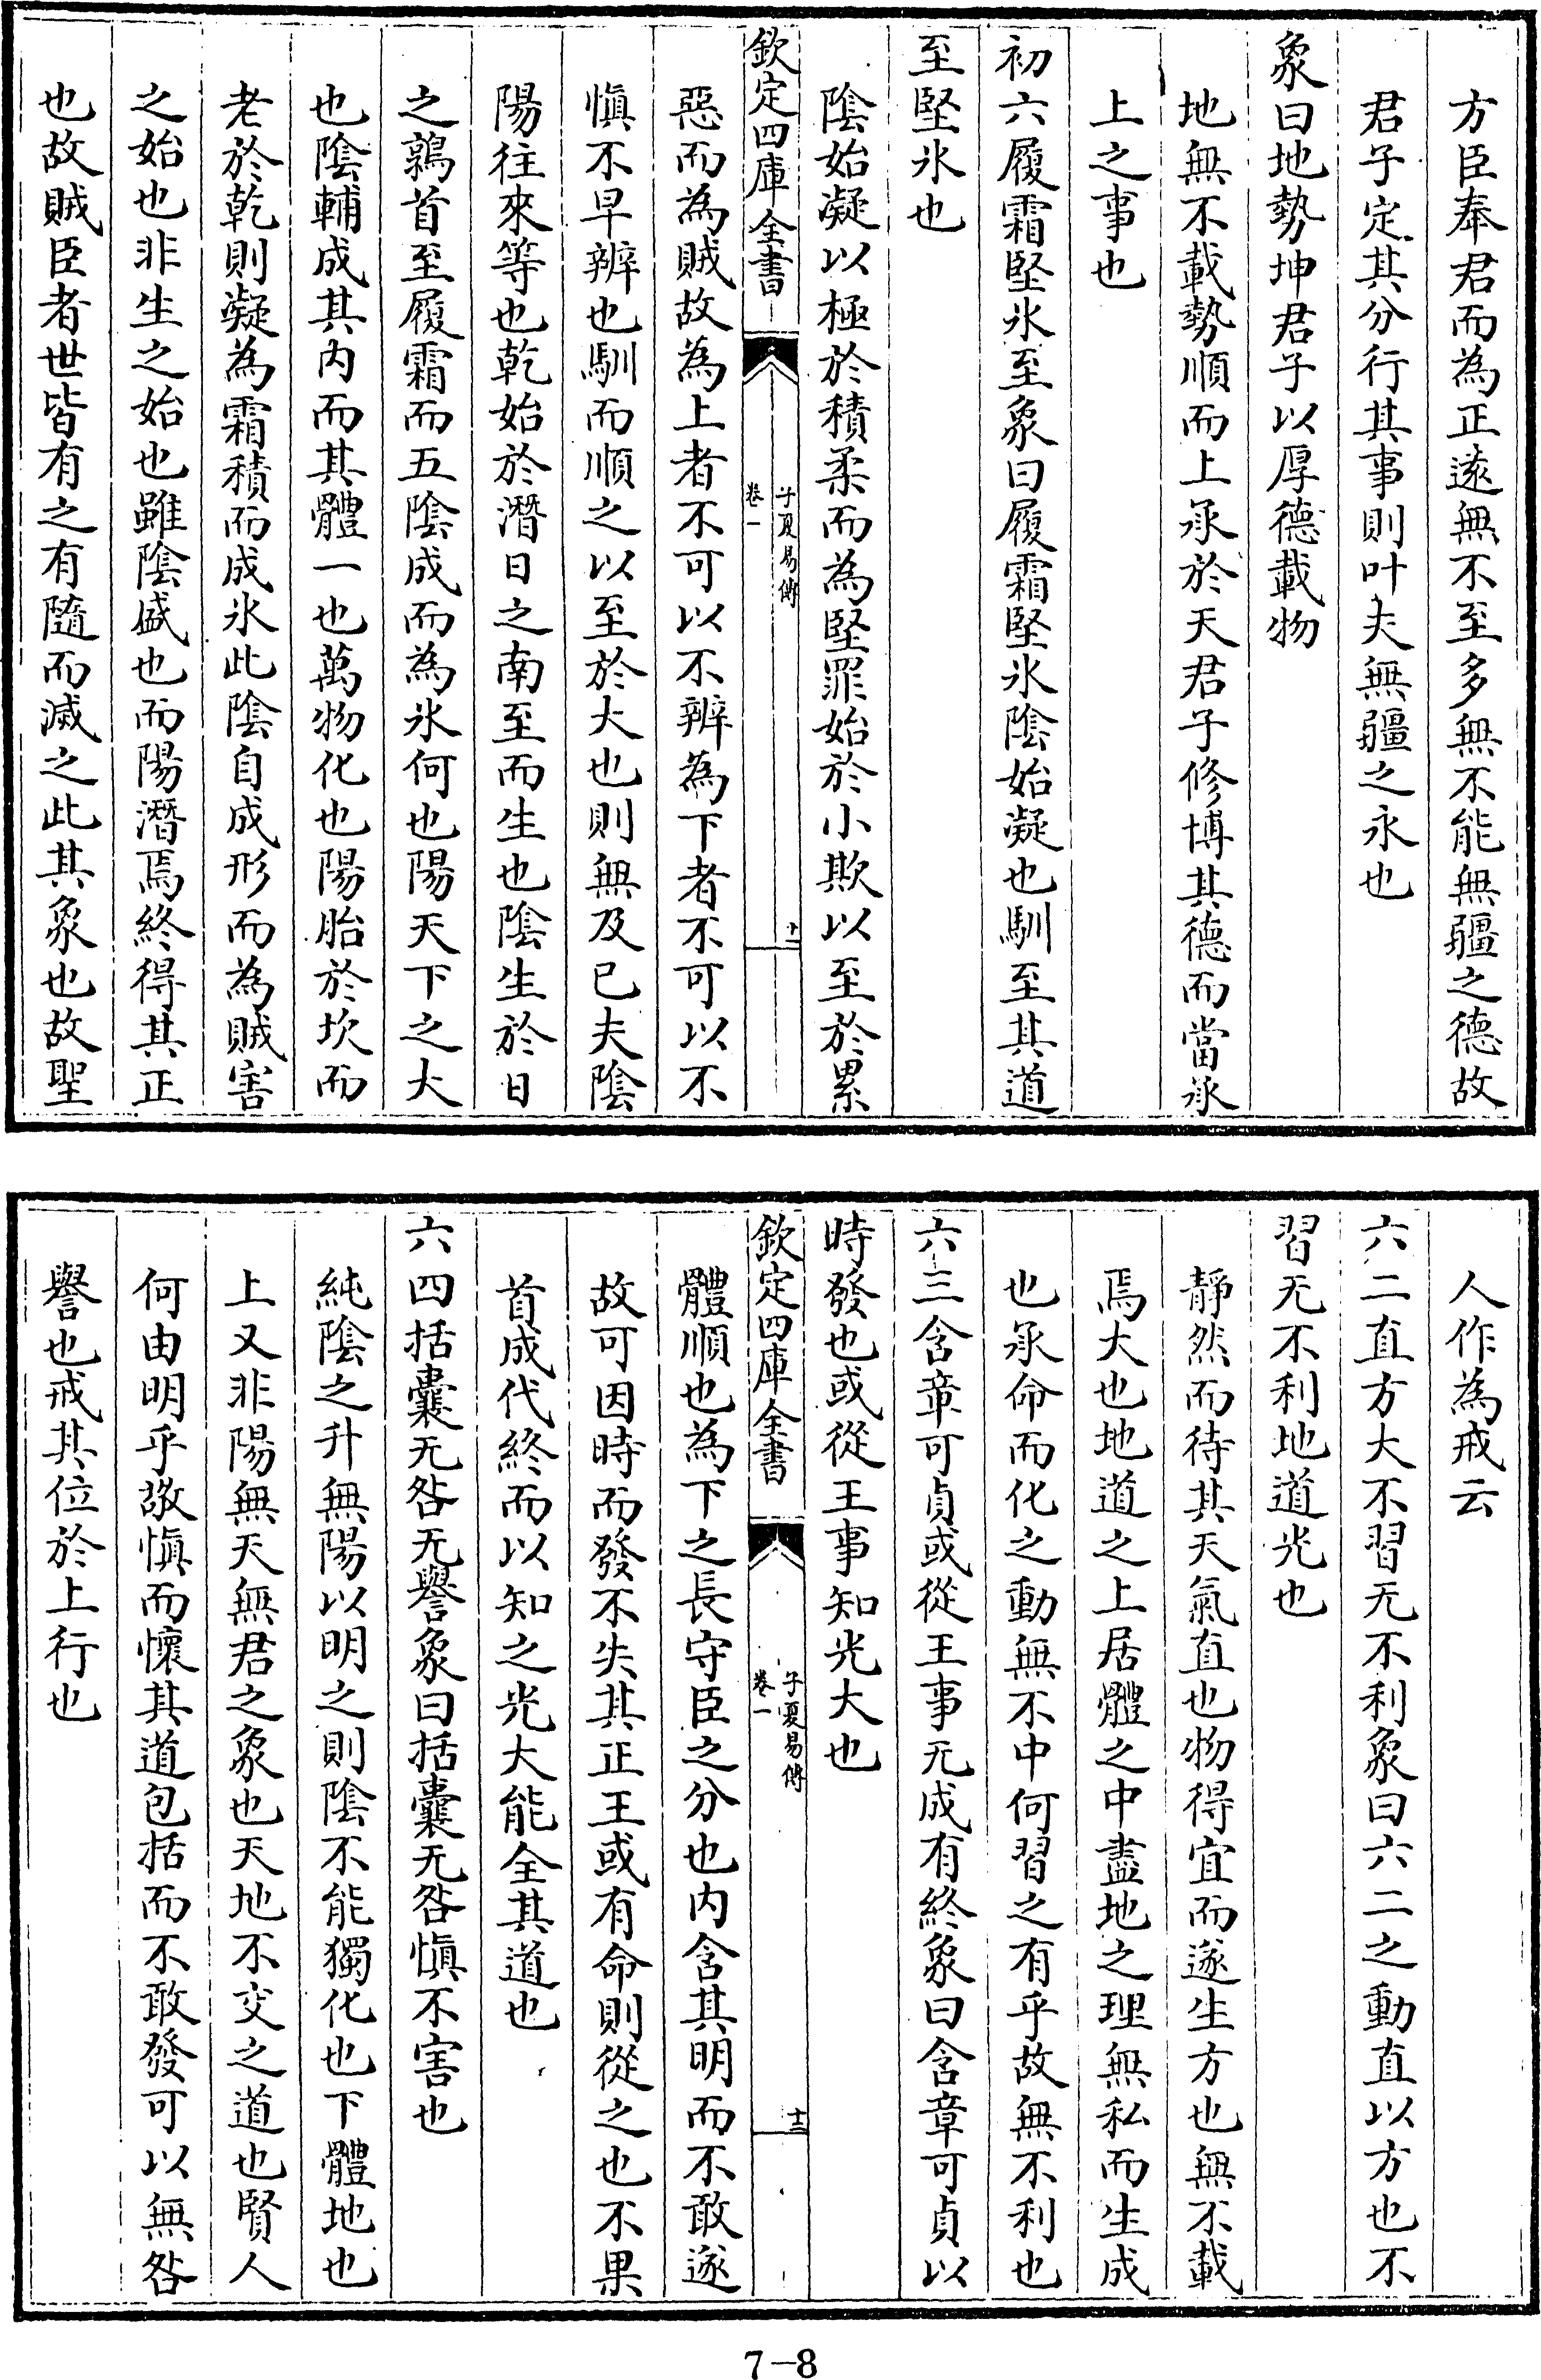 方臣奉君而為正遠無不至多無不能無疆之德故
君子定其分行其事則叶夫無疆之永也
象曰地勢坤君子以厚德載物
地無不載勢順而上承於天君子修博其德而當承
上之事也
初六履霜堅氷至象曰履霜堅氷陰始凝也馴至其道
至堅氷也
陰始凝以極於積柔而為堅罪始於小欺以至於累
欽定四庫全書
子夏易傳
卷一
十二
惡而為賊故為上者不可以不辨為下者不可以不
愼不早辨也馴而順之以至於大也則無及已夫陰
陽往來等也乾始於潛日之南至而生也陰生於日
之鶉首至履霜而五陰成而為氷何也陽天下之大
也陰輔成其内而其體一也萬物化也陽胎於坎而
老於乾則凝為霜積而成氷此陰自成形而為賊害
之始也非生之始也雖陰盛也而陽潛焉終得其正
也故賊臣者世皆有之有隨而滅之此其象也故聖
人作為戒云
六二直方大不習无不利象曰六二之動直以方也不
習无不利地道光也
靜然而待其天氣直也物得宜而遂生方也無不載
焉大也地道之上居體之中盡地之理無私而生成
也承命而化之動無不中何習之有乎故無不利也
六三含章可貞或從王事无成有終象曰含章可貞以
時發也或從王事知光大也
欽定四庫全書
子夏易傳
卷一
十三
體順也為下之長守臣之分也内含其明而不敢遂
故可因時而發不失其正王或有命則從之也不果
首成代終而以知之光大能全其道也
六四括囊无咎无譽象曰括囊无咎愼不害也
純陰之升無陽以明之則陰不能獨化也下體地也
上又非陽無天無君之象也天地不交之道也賢人
何由明乎故愼而懷其道包括而不敢發可以無咎
譽也戒其位於上行也
7-8